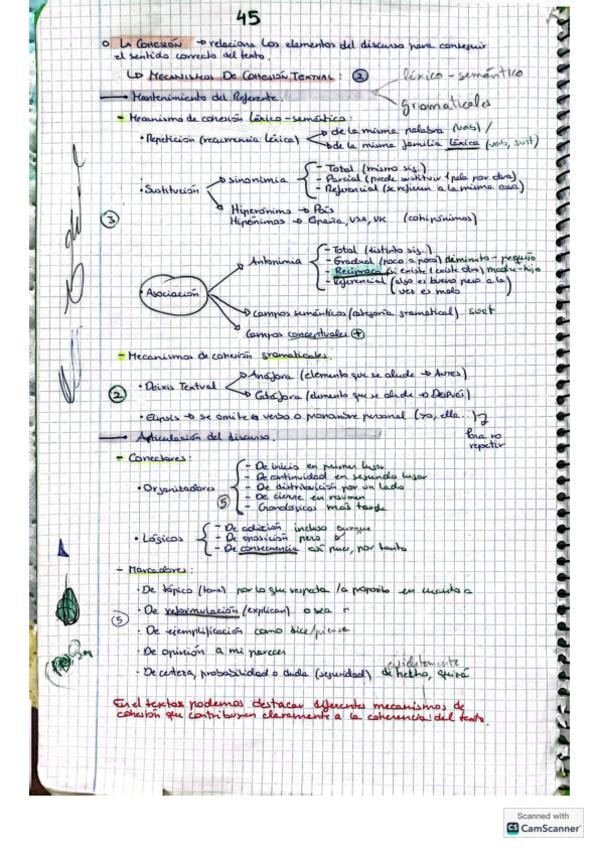 45
La Cohesión → relaciona los elementos del discurso para conseguir
el sentido correcto del texto.
↳ Mecanismos De Cohesión Textual: ②
léxico-semántico
gramaticales
→ Mantenimiento del Referente.
- Mecanismo de cohesión léxico-semántico:
• Repetición (recurrencia léxica)
de la misma palabra (vab) /
de la misma familia léxica (vab, sust)
③
• Sustitución
sinonimia
- Total (mismo sig.)
- Parcial (puede sustituir 1 pala por otra)
- Referencial (se refieren a la misma cosa)
Hiperónimo → País
Hipónimos → España, USA, UK (cohipónimos)
• Asociación
Antonimia
- Total (distinto sig.)
- Gradual (poco a poco) diminuto - pequeño
- Recíproca (si existe 1 existe otro) madre-hijo
- Referencial (algo es bueno pero a la
vez es malo)
campos semánticos (categoría gramatical) sust
Campos conceptuales +
- Mecanismos de cohesión gramaticales.
②
• Deixis Textual
Anáfora (elemento que se alude → Antes)
Catáfora (elemento que se alude → Después)
• Elipsis → se omite verbo o pronombre personal (yo, ella...)
Para no
repetir
→ Articulación del discurso.
- Conectores:
• Organizadores
⑤
- De inicio en primer lugar
- De continuidad en segundo lugar
- De distribución por un lado
- De cierre en resumen
- Cronológicos más tarde
• Lógicos
- De adición incluso aunque
- De oposición pero
- De consecuencia así pues, por tanto
- Marcadores:
⑤
• De tópico (tema) por lo que respecta / a propósito en cuanto a
• De reformulación (explican) o sea
• De ejemplificación como dice/piensa
• De opinión a mi parecer
• De certeza, probabilidad o duda (seguridad) de hecho, quizá
evidentemente
En el textos podemos destacar diferentes mecanismos de
cohesión que contribuyen claramente a la coherencia del texto.
Scanned with
CS CamScanner